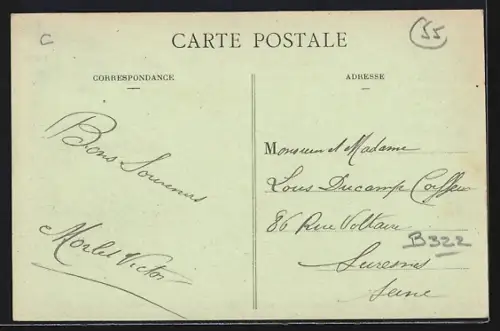 C
55
CARTE POSTALE
CORRESPONDANCE
ADRESSE
Bons Souvenirs
Morlet Victor
Monsieur et Madame
Louis Ducamp Coiffeur
86 Rue Voltaire
B322
Suresnes
Seine